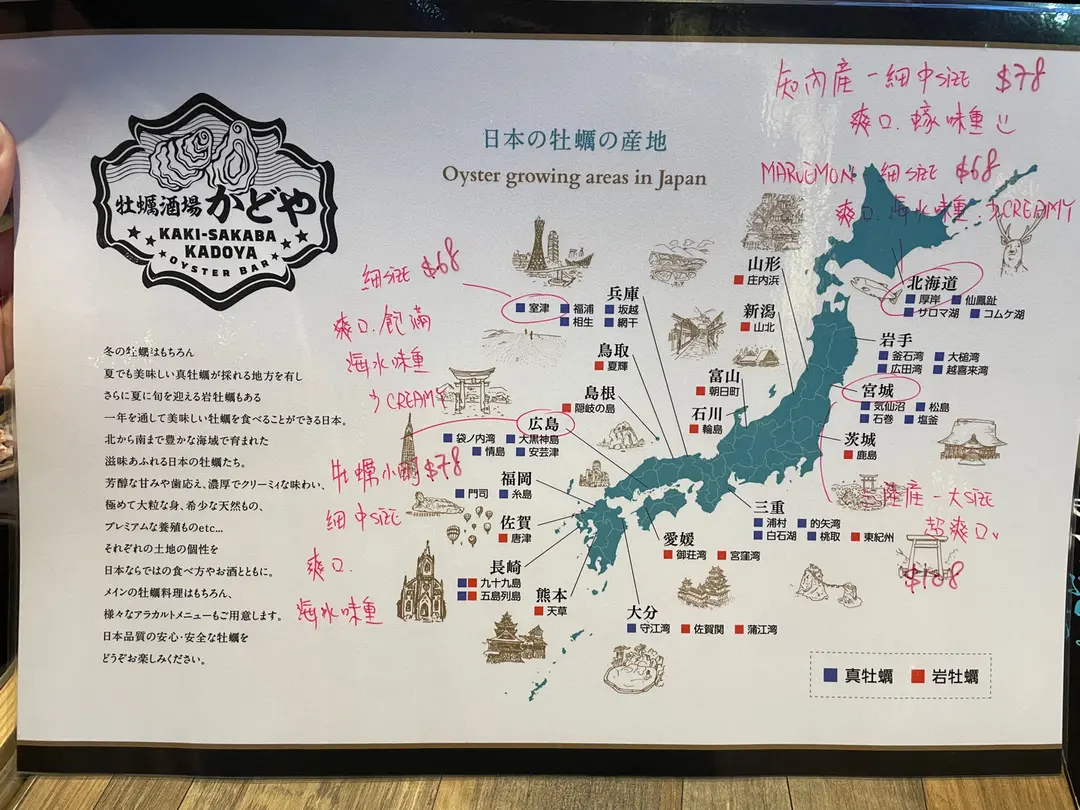 牡蠣酒場 かどや
KAKI-SAKABA
KADOYA
OYSTER BAR
日本の牡蠣の産地
Oyster growing areas in Japan
冬の牡蠣はもちろん
夏でも美味しい真牡蠣が採れる地方を有し
さらに夏に旬を迎える岩牡蠣もある
一年を通して美味しい牡蠣を食べることができる日本。
北から南まで豊かな海域で育まれた
滋味あふれる日本の牡蠣たち。
芳醇な甘みや歯応え、濃厚でクリーミィな味わい、
極めて大粒な身、希少な天然もの、
プレミアムな養殖ものetc...
それぞれの土地の個性を
日本ならではの食べ方やお酒とともに。
メインの牡蠣料理はもちろん、
様々なアラカルトメニューもご用意します。
日本品質の安心・安全な牡蠣を
どうぞお楽しみください。
知内産 - 細中size $78
爽口. 蠔味重
MARUEMON - 細size $68
爽口. 海水味重. う CREAMY
細size $68
爽口. 飽滿
海水味重
う CREAMY
牡蠣小町 $78
細中size
爽口.
海水味重
三陸産 - 大size
超爽口、
$108
北海道
厚岸 仙鳳趾
サロマ湖 コムケ湖
岩手
釜石湾 大槌湾
広田湾 越喜来湾
宮城
気仙沼 松島
石巻 塩釜
茨城
鹿島
山形
庄内浜
新潟
山北
富山
朝日町
石川
輪島
兵庫
室津 福浦 坂越
相生 網干
鳥取
夏輝
島根
隠岐の島
広島
袋ノ内湾 大黒神島
情島 安芸津
福岡
門司 糸島
佐賀
唐津
長崎
九十九島
五島列島
熊本
天草
大分
守江湾 佐賀関 蒲江湾
愛媛
御荘湾 宮窪湾
三重
浦村 的矢湾
白石湖 桃取 東紀州
真牡蠣 岩牡蠣